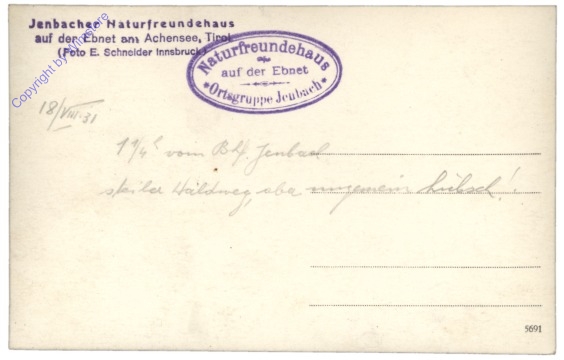 Jenbacher Naturfreundehaus
auf der Ebnet am Achensee, Tirol
(Foto E. Schneider Innsbruck)
Copyright by Winstore
Naturfreundehaus
auf der Ebnet
Ortsgruppe Jenbach
18/VIII.31
1 1/4 h vom Bhf. Jenbach
steiler Waldweg, aber ungemein hübsch!
5691